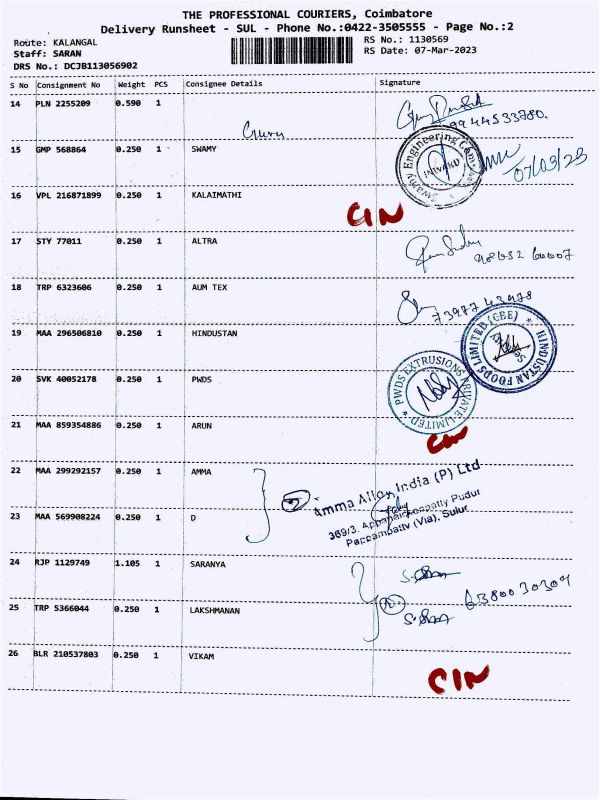 THE PROFESSIONAL COURIERS, Coimbatore
Delivery Runsheet - SUL - Phone No.:0422-3505555 - Page No.:2
Route: KALANGAL
RS No.: 1130569
Staff: SARAN
RS Date: 07-Mar-2023
DRS No.: DCJB113056902
S No Consignment No Weight PCS Consignee Details Signature
14 PLN 2255209 0.590 1
Guru
9944533780.
15 GMP 568864 0.250 1 SWAMY
Swamy Engineering
07/03/23
16 VPL 216871899 0.250 1 KALAIMATHI
CIN
17 STY 77011 0.250 1 ALTRA
18 TRP 6323606 0.250 1 AUM TEX
73977 43978
19 MAA 296506810 0.250 1 HINDUSTAN
HINDUSTAN FOODS LIMITED (CBE)
20 SVK 40052178 0.250 1 PWDS
PWDS EXTRUSIONS PRIVATE LIMITED
21 MAA 859354886 0.250 1 ARUN
CIN
22 MAA 299292157 0.250 1 AMMA
Amma Alloy India (P) Ltd
369/3, Pudur
Pappampatty (Via), Sulur
23 MAA 569908224 0.250 1 D
24 RJP 1129749 1.105 1 SARANYA
6380030304
25 TRP 5366044 0.250 1 LAKSHMANAN
26 BLR 210537803 0.250 1 VIKAM
CIN